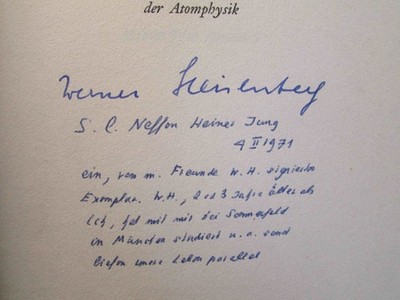 der Atomphysik
Werner Heisenberg
S. l. Neffen Heiner Jung
4 II 1971
ein, von m. Freunde W.H. signiertes
Exemplar. W.H., 2 od 3 Jahre älter als
ich, hat mit mir bei Sommerfeld
in München studiert u. a. sond
liefen unsere Leben parallel